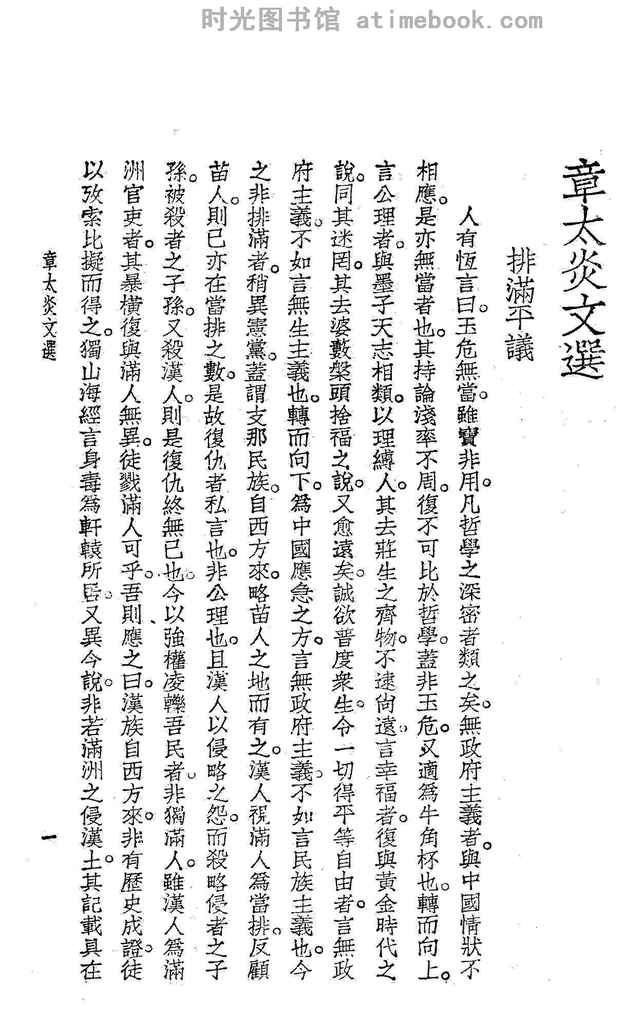 时光图书馆 atimebook.com
章太炎文選
排滿平議
人有恆言曰。玉危無當。雖寶非用。凡哲學之深密者類之矣。無政府主義者。與中國情狀不
相應。是亦無當者也。其持論淺率不周。復不可比於哲學。蓋非玉危。又適為牛角杯也。轉而向上。
言公理者。與墨子天志相類。以理縛人。其去莊生之齊物。不逮尙遠。言幸福者。復與黃金時代之
說。同其迷罔。其去婆數槃頭捨福之說。又愈遠矣。誠欲普度衆生。令一切得平等自由者。言無政
府主義。不如言無生主義也。轉而向下。爲中國應急之方。言無政府主義。不如言民族主義也。今
之非排滿者。稍異憲黨。蓋謂支那民族。自西方來。略苗人之地而有之。漢人視滿人爲當排。反顧
苗人。則已亦在當排之數。是故復仇者私言也。非公理也。且漢人以侵略之怨。而殺略侵者之子
孫。被殺者之子孫。又殺漢人。則是復仇終無已也。今以強權凌轢吾民者。非獨滿人。雖漢人爲滿
洲官吏者。其暴橫復與滿人無異。徒戮滿人可乎。吾則應之曰。漢族自西方來。非有歷史成證。徒
以攷索比擬而得之。獨山海經言身毒爲軒轅所居。又異今說。非若滿洲之侵漢土。其記載具在
章太炎文選
一